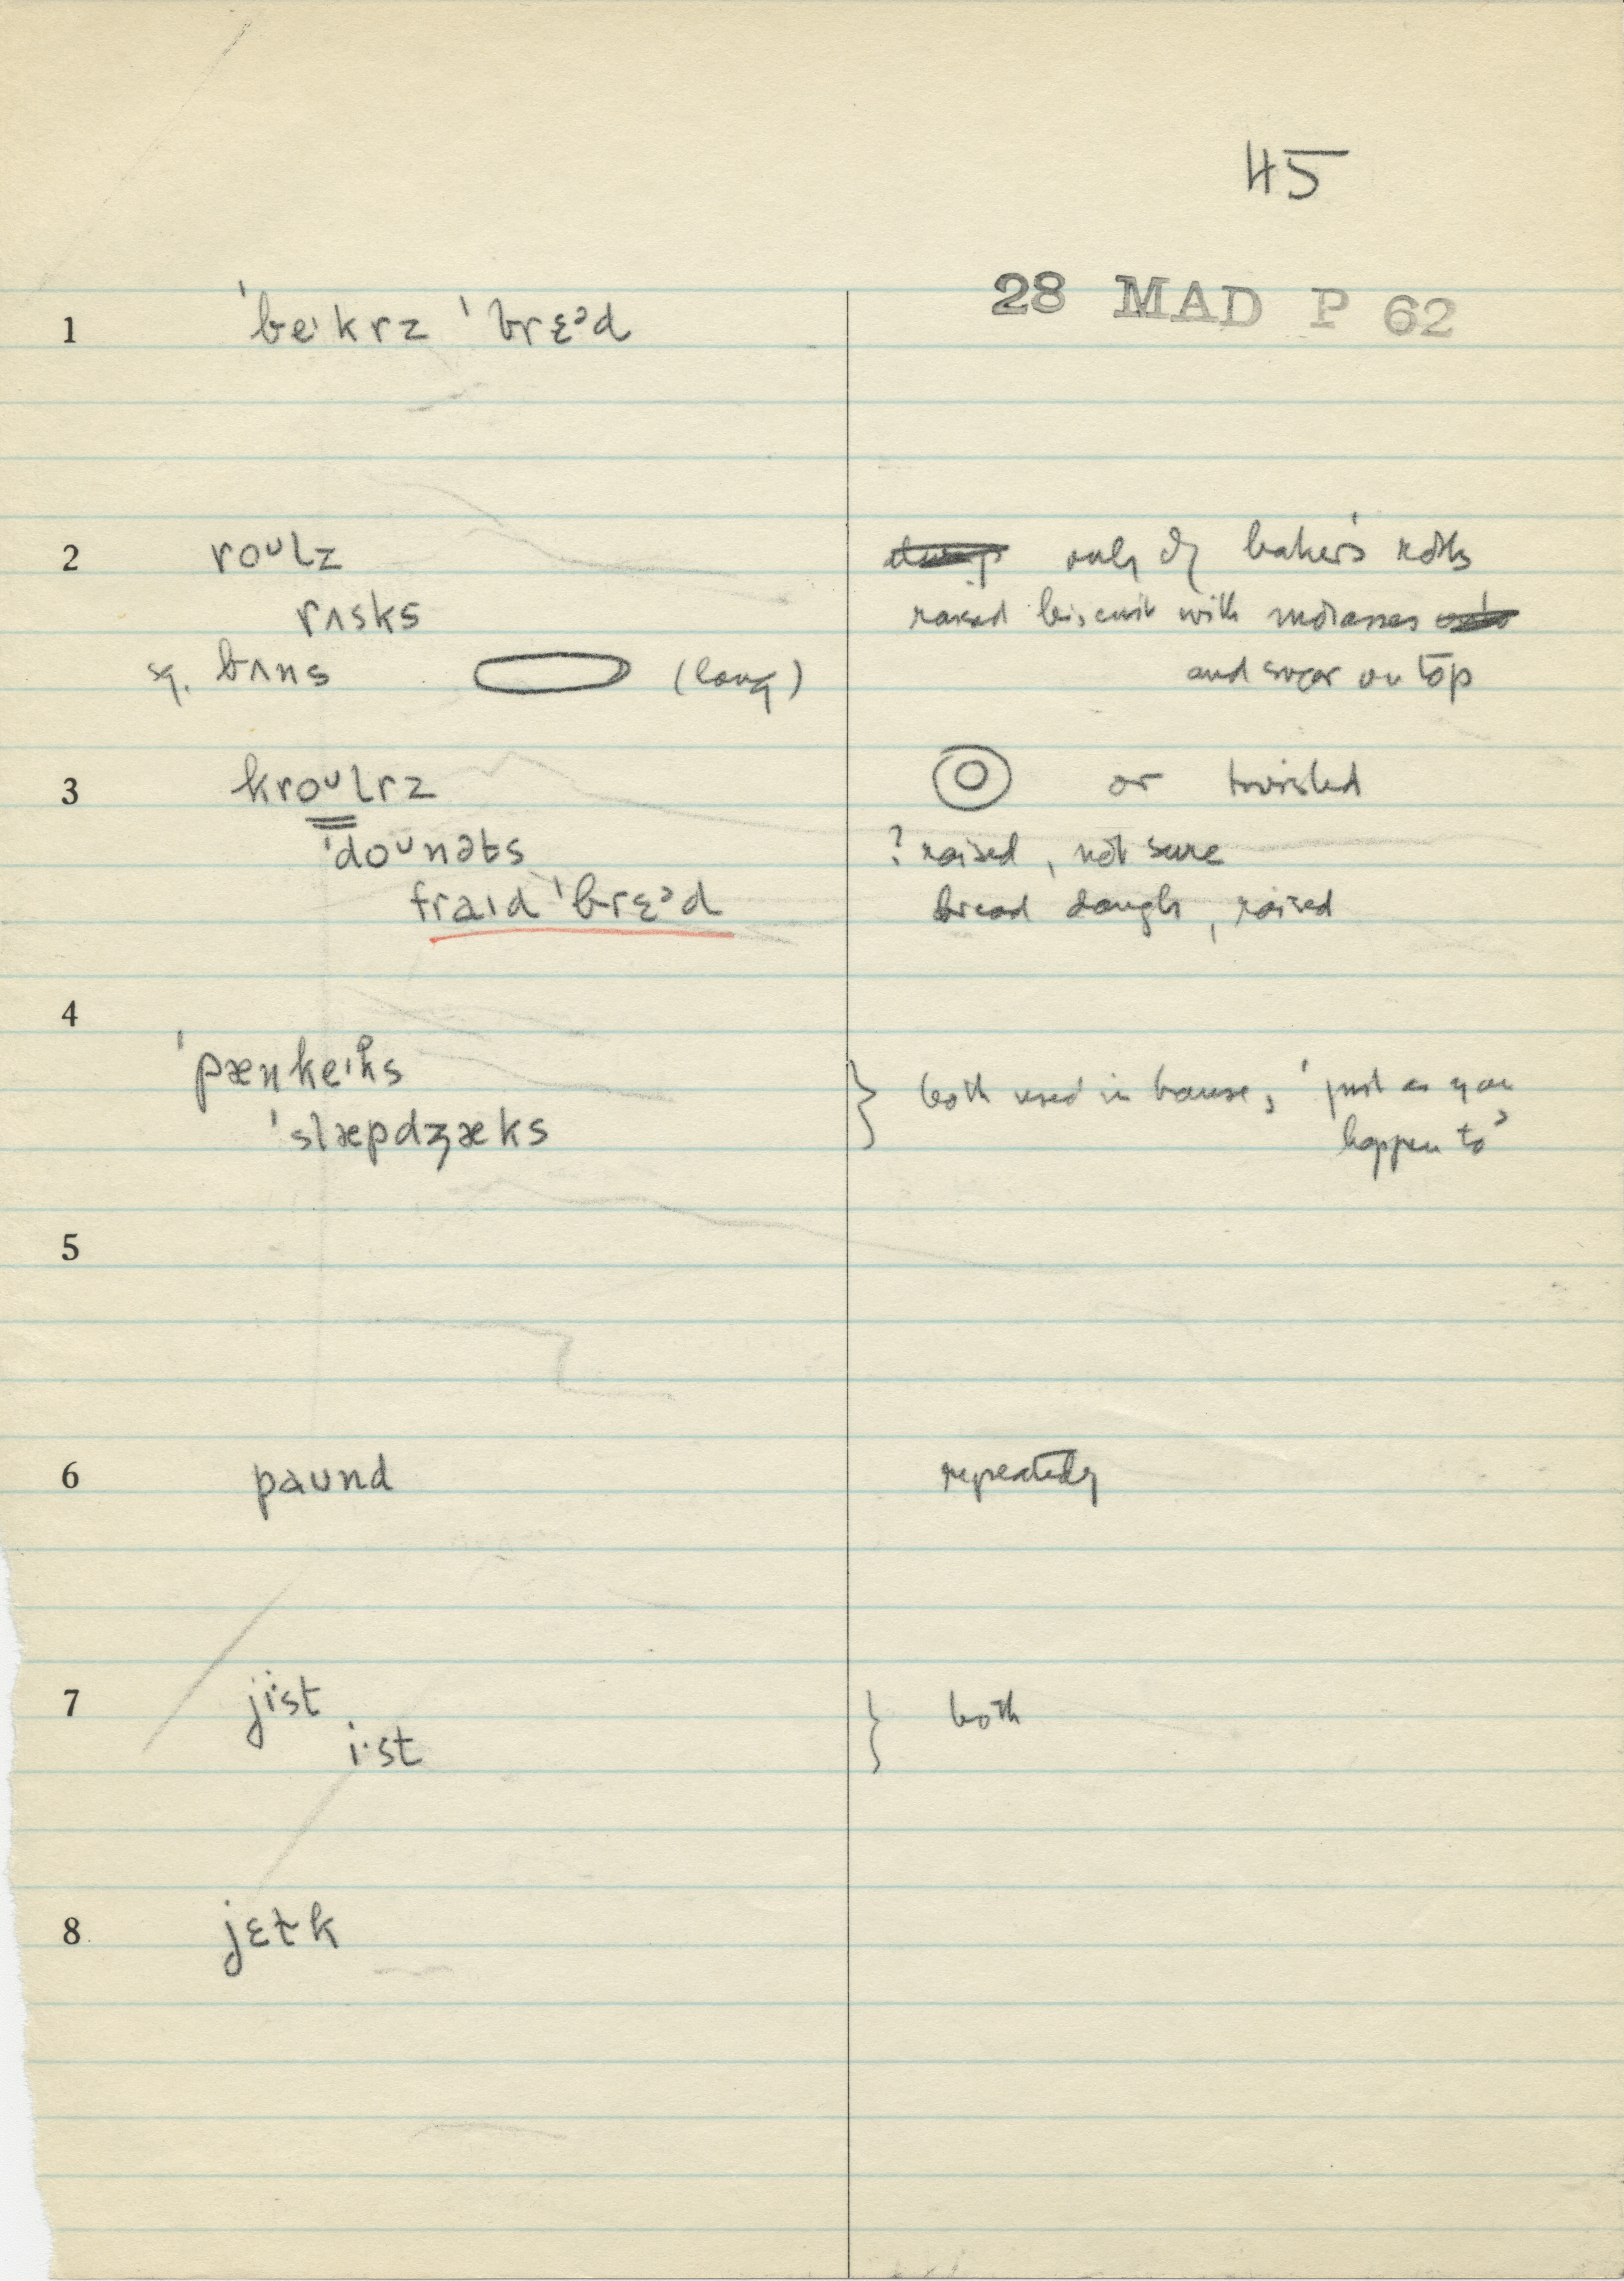 45
28 MAD P 62
1 ˈbeɪkrz ˈbrɛᵊd
2 roᵁlz only of baker's rolls
rʌsks raised biscuit with molasses
sq. bʌns (long) and sugar on top
3 kroᵁlrz or twisted
ˈdoᵁnəts ? raised, not sure
fraɪd ˈbrɛᵊd bread dough, raised
4
ˈpænkeɪks } both used in house, 'just as you
ˈslæpdʒæks happen to'
5
6 paʊnd repeatedly
7 jist } both
i·st
8 jɛɫk